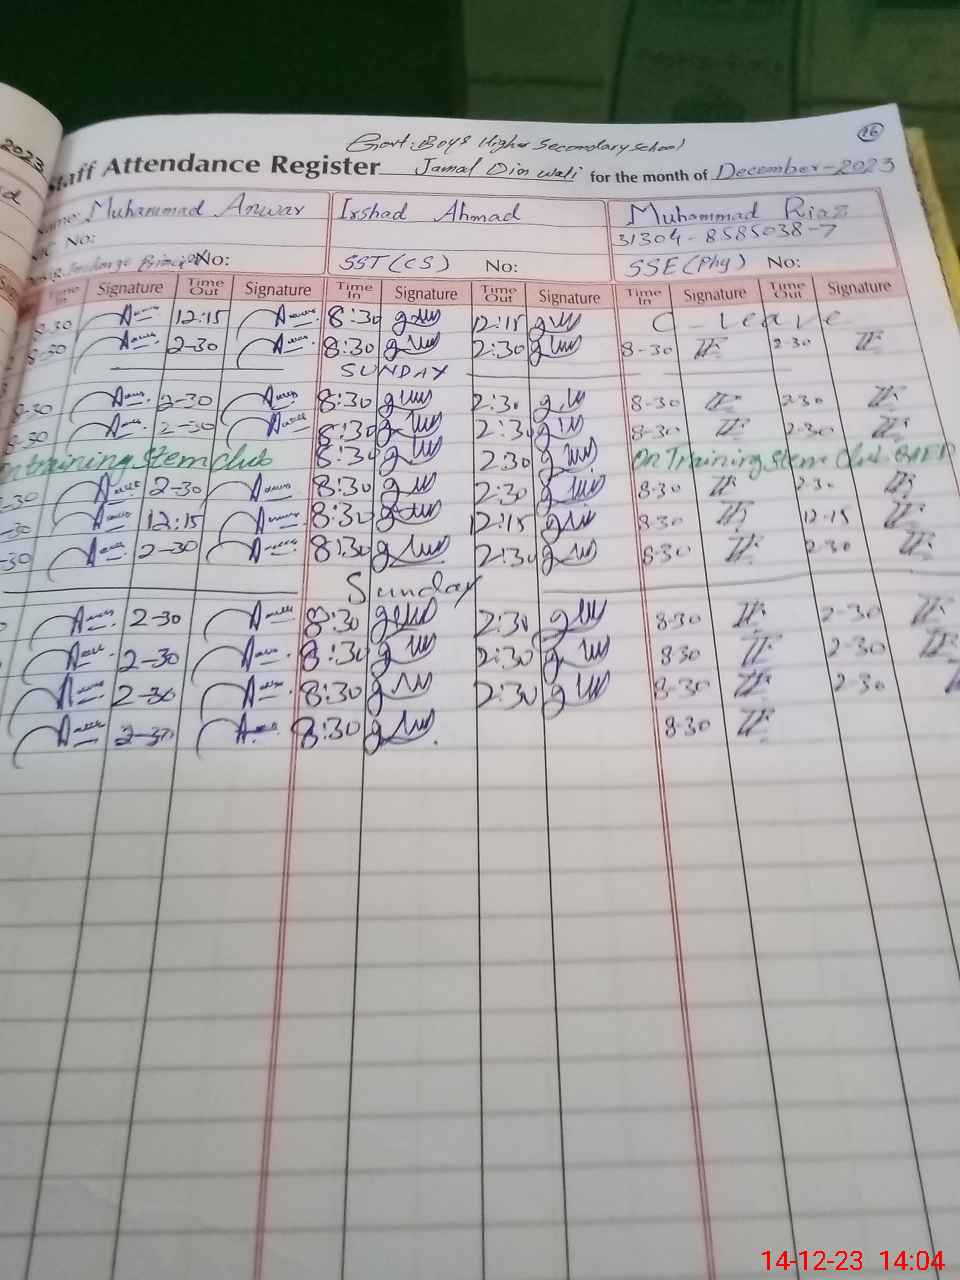 2023
16
Govt: Boys Higher Secondary school
Staff Attendance Register Jamal Din wali for the month of December-2023
Name: Muhammad Anwar Irshad Ahmad Muhammad Riaz
No: 31304-8585038-7
Incharge Principal No: SST(CS) No: SSE(Phy) No:
Time In Signature Time Out Signature Time In Signature Time Out Signature Time In Signature Time Out Signature
8-30 12:15 8:30 12:15 C - Leave
8-30 2-30 8:30 2:30 8-30 2-30
SUNDAY
8-30 2-30 8:30 2:30 8-30 2-30
8-30 2-30 8:30 2:30 8-30 2-30
on training Stem club 8:30 2:30 On Training Stem Club
-30 2-30 8:30 2:30 8-30 2-30
-30 12:15 8:30 12:15 8-30 12-15
-30 2-30 8:30 2:30 8-30 2-30
Sunday
2-30 8:30 2:30 8-30 2-30
2-30 8:30 2:30 8-30 2-30
2-30 8:30 2:30 8-30 2-30
2-30 8:30 8-30
14-12-23 14:04